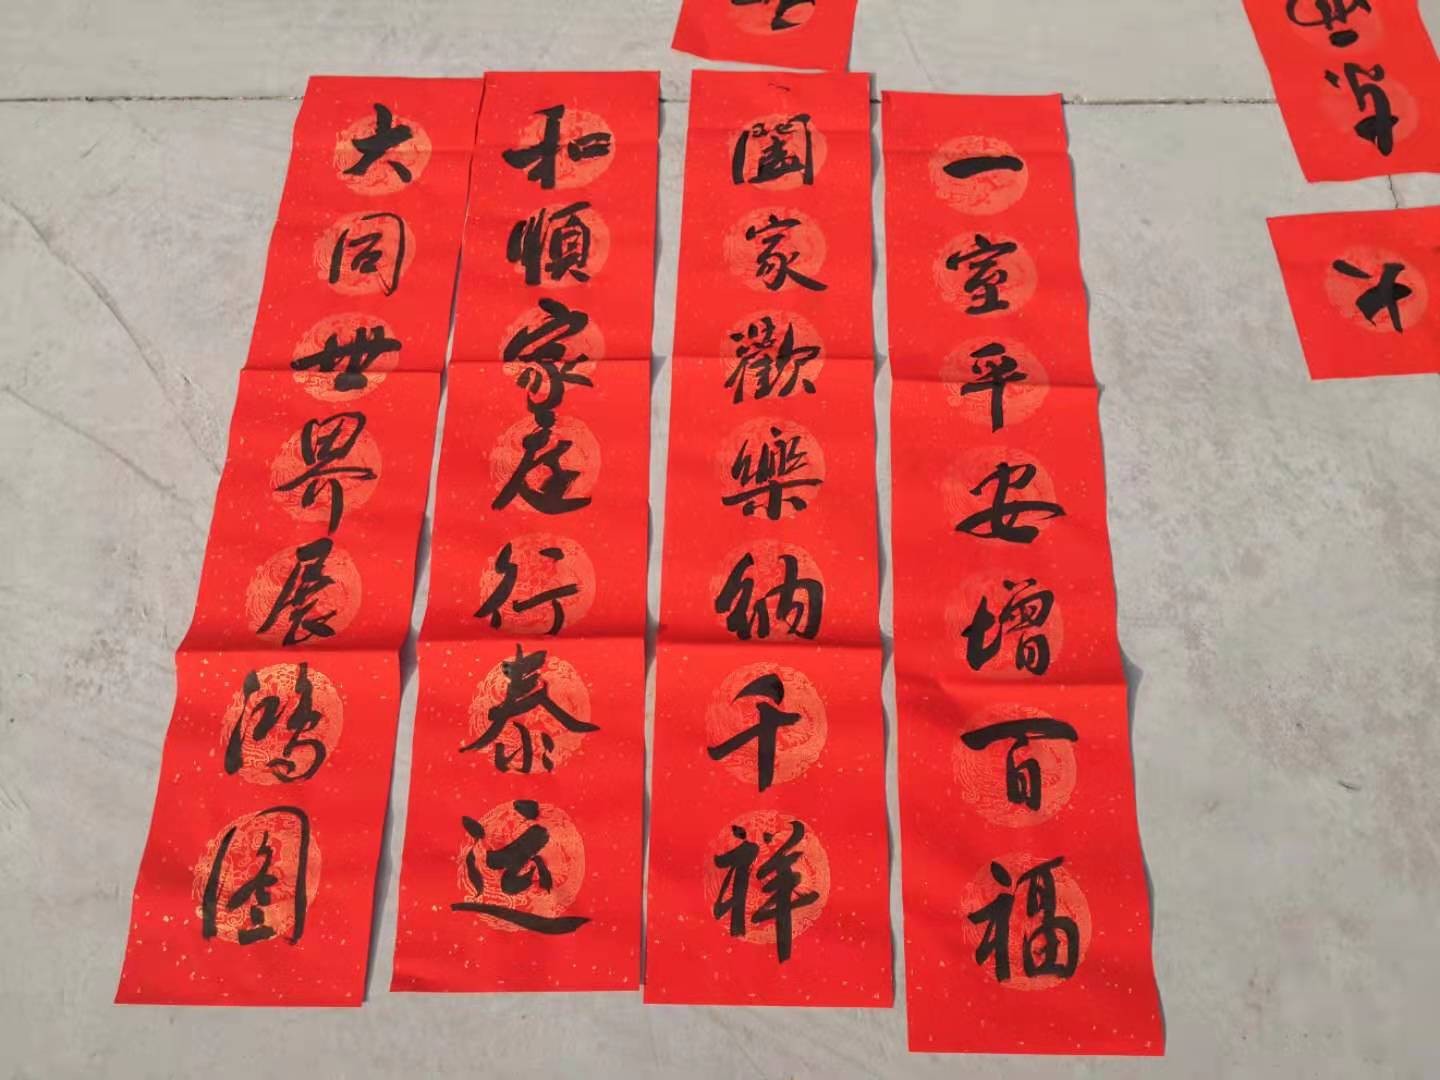 一室平安增百福
闔家歡樂纳千祥
和順家庭行泰运
大同世界展鸿图